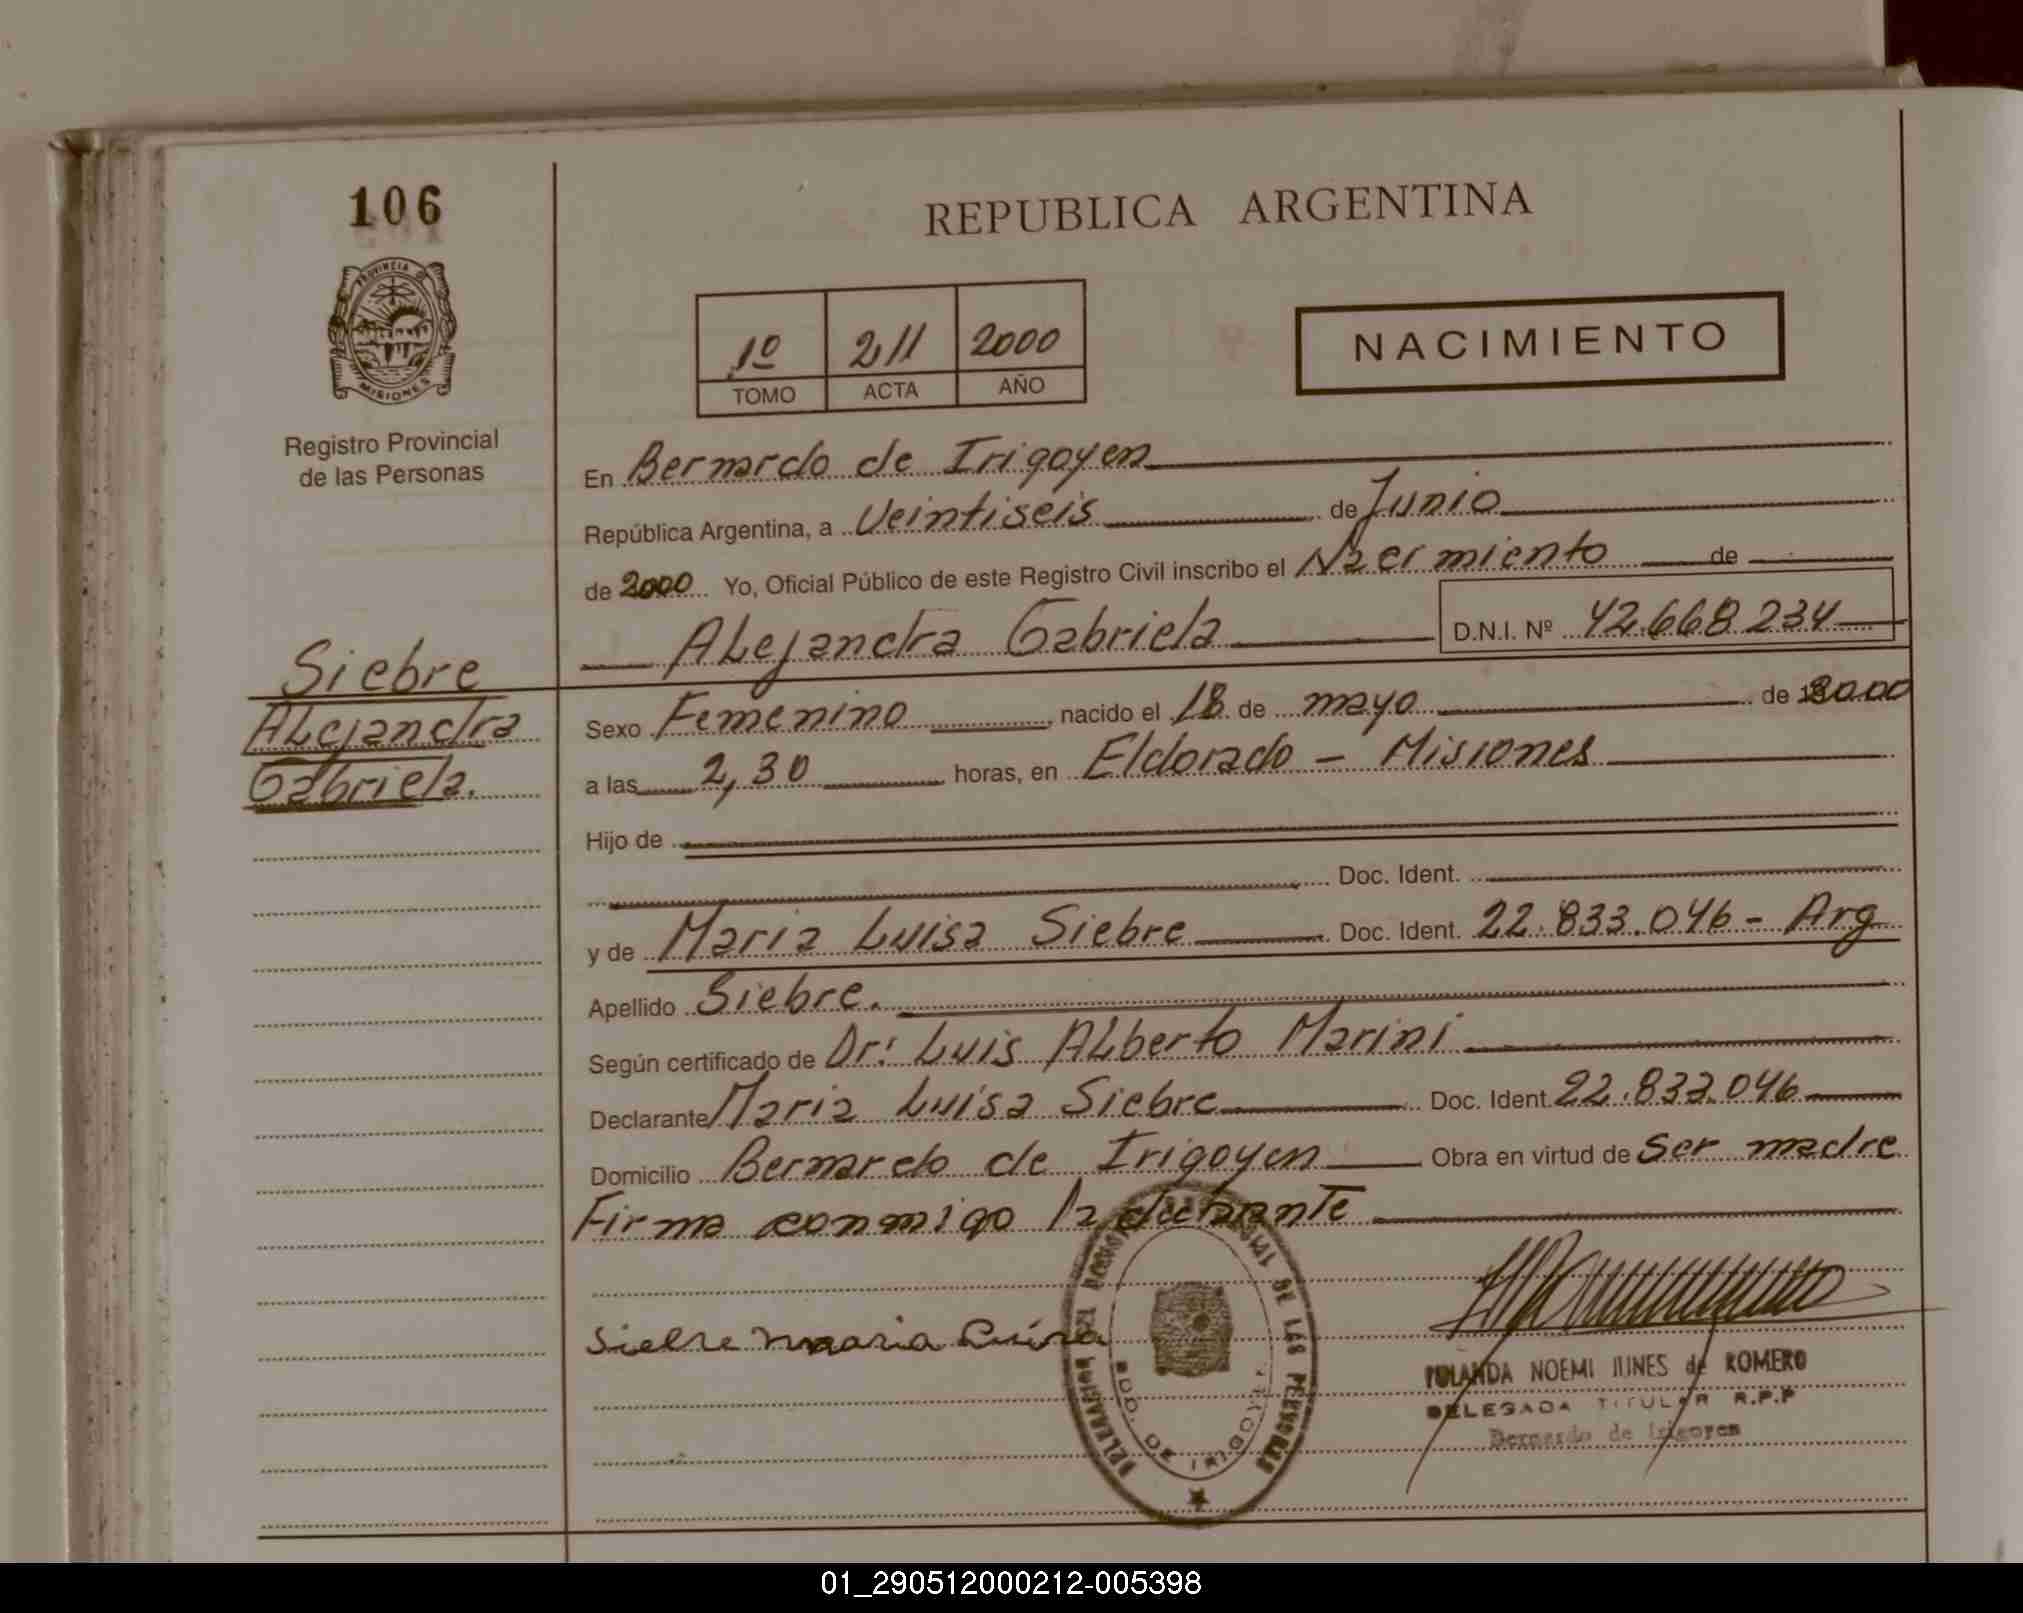 106
REPUBLICA ARGENTINA
PROVINCIA DE
MISIONES
1º 211 2000
TOMO ACTA AÑO
NACIMIENTO
Registro Provincial
de las Personas
En Bernardo de Irigoyen
República Argentina, a Veintiseis de Junio
de 2000 Yo, Oficial Público de este Registro Civil inscribo el Nacimiento de
Alejandra Gabriela D.N.I. Nº 42.668 234
Siebre
Alejandra
Gabriela.
Sexo Femenino nacido el 18 de mayo de 2000
a las 2,30 horas, en Eldorado - Misiones
Hijo de
Doc. Ident.
y de Maria Luisa Siebre Doc. Ident. 22.833.046 - Arg
Apellido Siebre.
Según certificado de Dr: Luis Alberto Marini
Declarante Maria Luisa Siebre Doc. Ident. 22.833.046
Domicilio Bernardo de Irigoyen Obra en virtud de Ser madre
Firma conmigo la declarante
Siebre Maria Luisa
DE LAS PERSONAS
BDO. DE IRIGOYEN
YOLANDA NOEMI de ROMERO
DELEGADA TITULAR R.P.P
Bernardo de Irigoyen
01_290512000212-005398